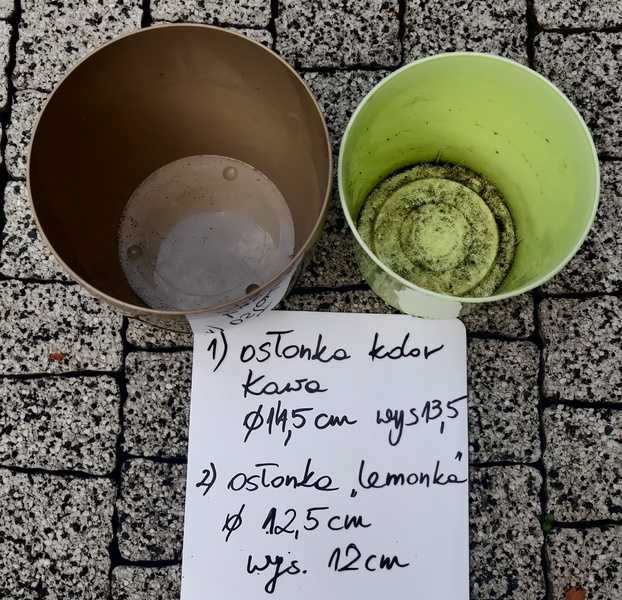 1) osłonka kolor
kawa
ø14,5cm wys13,5
2) osłonka „lemonka"
ø 12,5cm
wys. 12cm